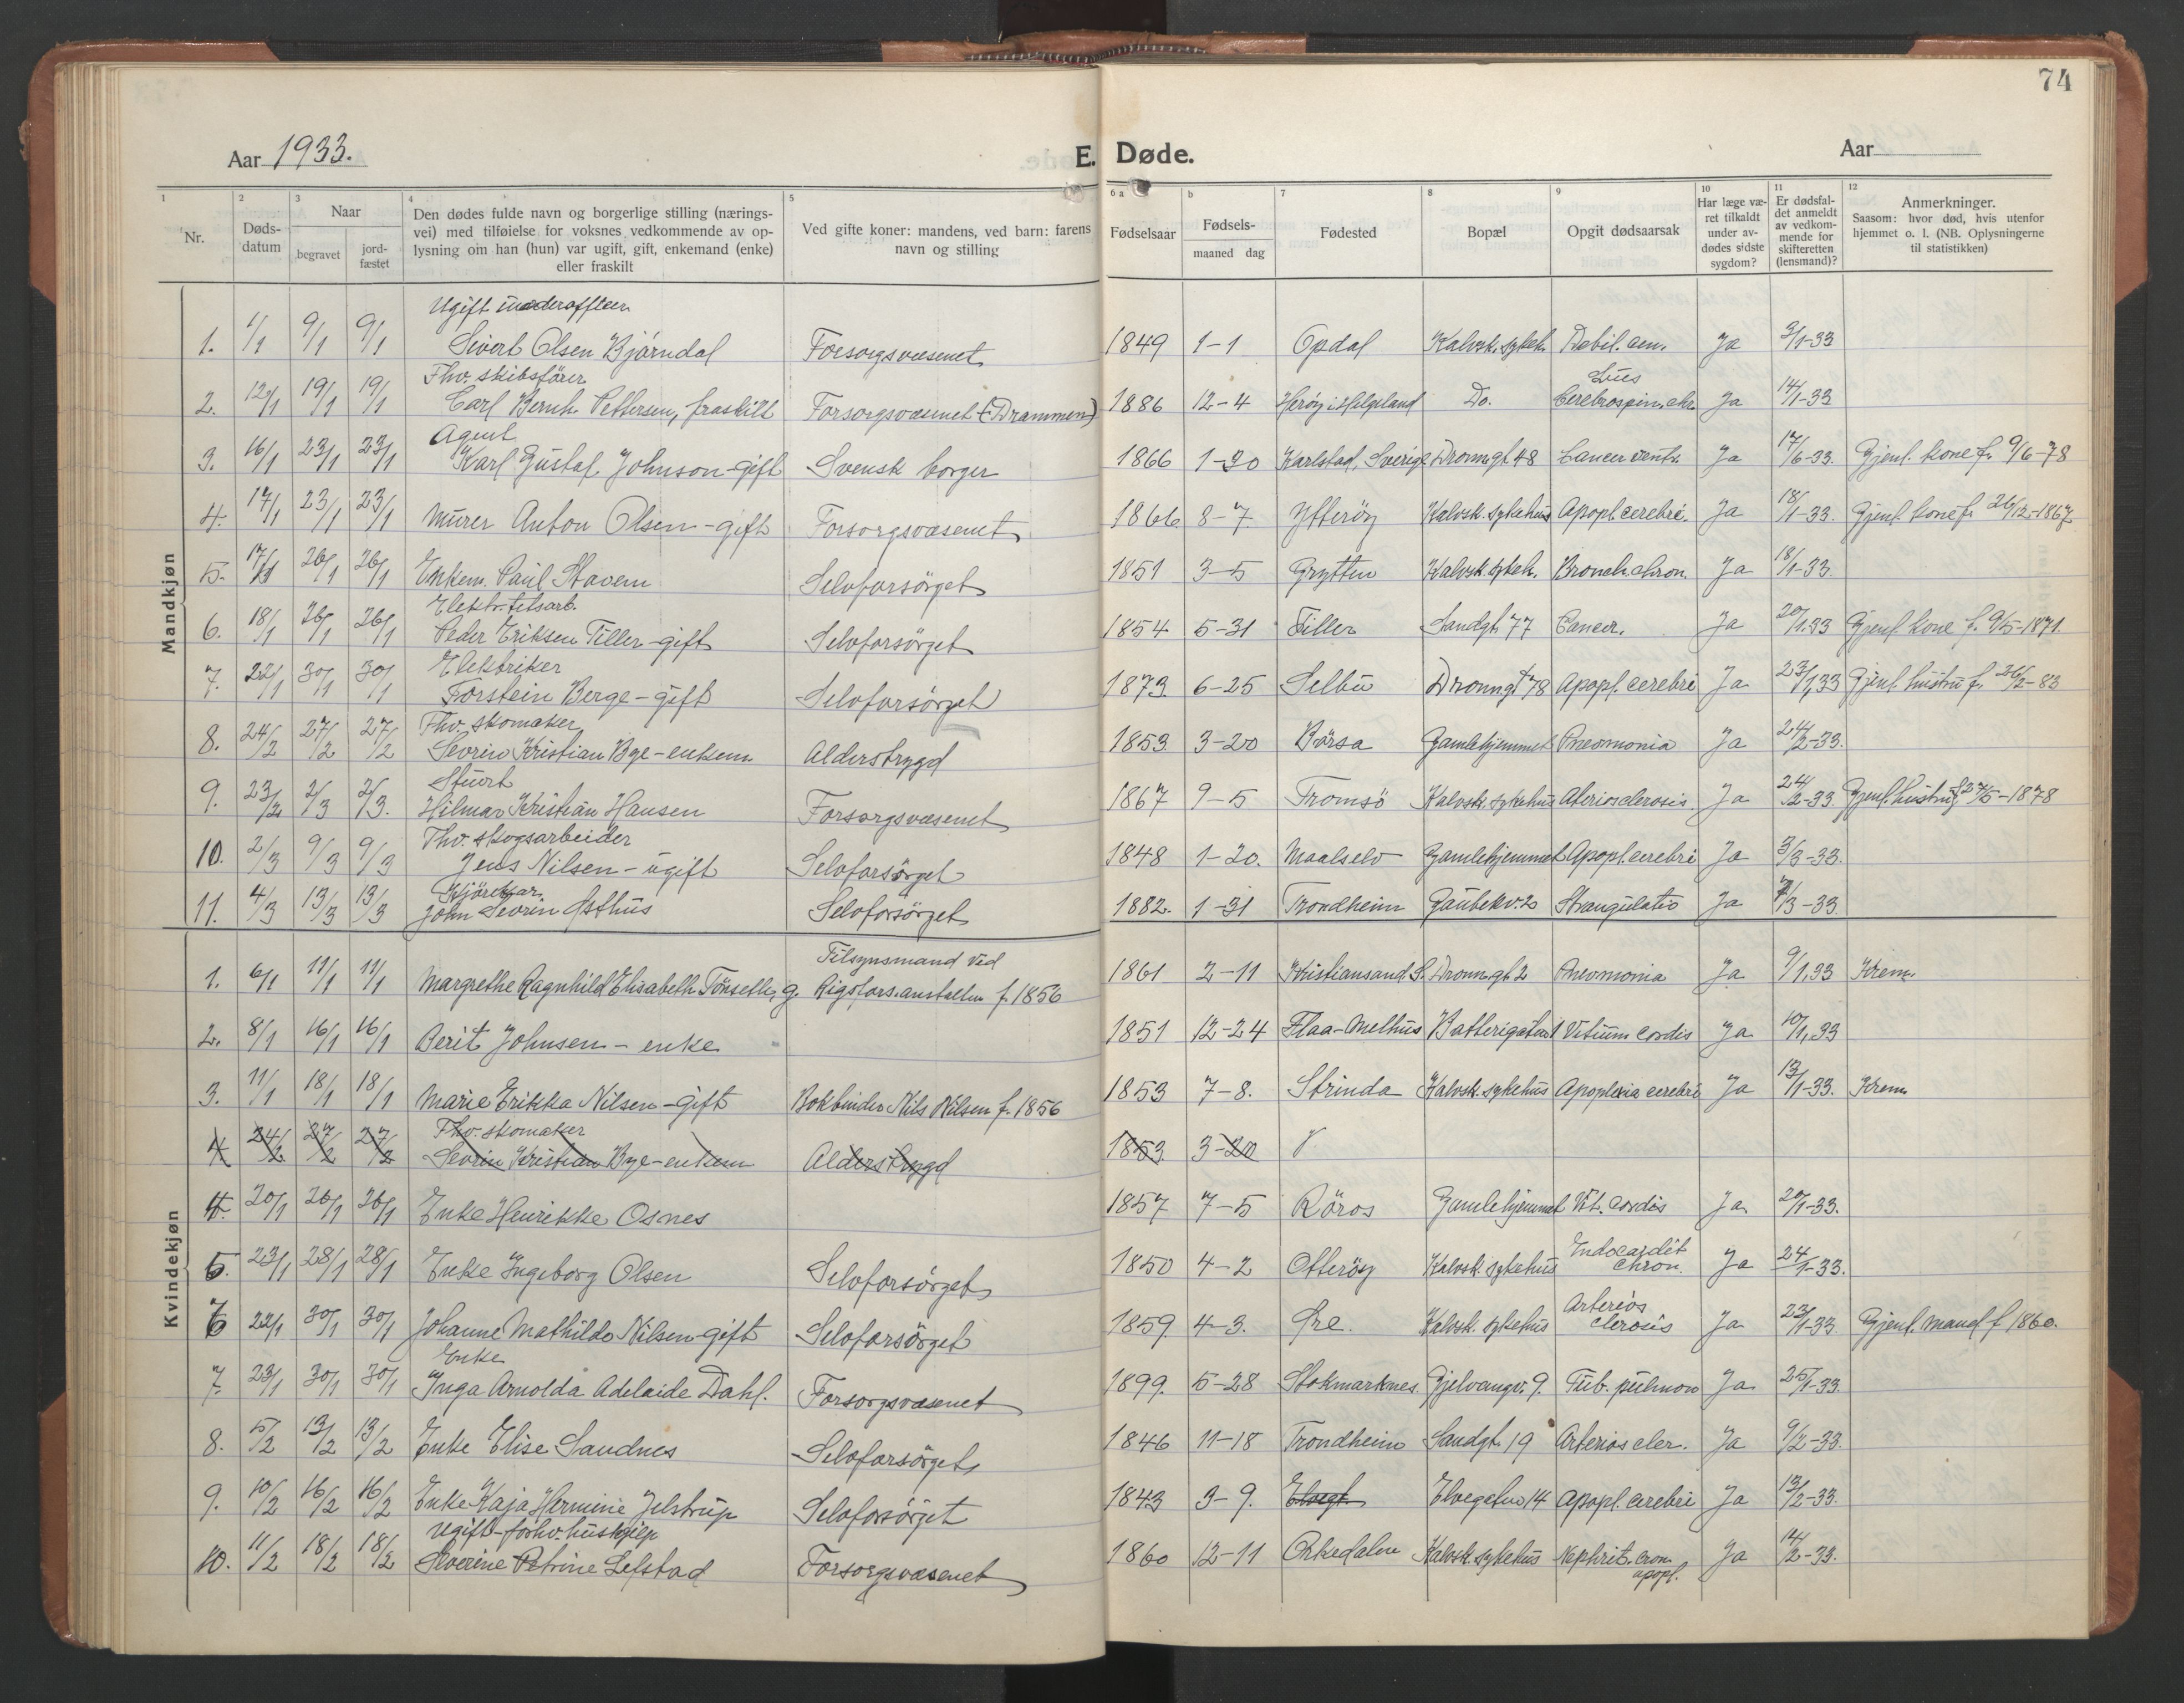 74
Aar 1933.
E. Døde.
Aar
1 Nr.
2 Døds-datum
3 Naar begravet jord-fæstet
4 Den dødes fulde navn og borgerlige stilling (nærings-vei) med tilføielse for voksnes vedkommende av op-lysning om han (hun) var ugift, gift, enkemand (enke) eller fraskilt
5 Ved gifte koner: mandens, ved barn: farens navn og stilling
6 a Fødselsaar
b Fødsels- maaned dag
7 Fødested
8 Bopæl
9 Opgit dødsaarsak
10 Har læge væ-ret tilkaldt under av-dødes sidste sygdom?
11 Er dødsfal-det anmeldt av vedkom-mende for skifteretten (lensmand)?
12 Anmerkninger. Saasom: hvor død, hvis utenfor hjemmet o. l. (NB. Oplysningerne til statistikken)
Mandkjøn
1. 1/1 9/1 9/1 Ugift Sivert Olsen Bjørndal Forsorgsvæsenet 1849 1-1 Opdal Kalvsk. sykeh. Debil. sen. Ja 3/1-33
2. 12/1 19/1 19/1 Fhv. skibsfører Carl Bernh. Pettersen, fraskilt Forsorgsvæsenet (Drammen) 1886 12-4 Herøy i Helgeland Do. Lues Cerebrospin. chr. Ja 14/1-33
3. 16/1 23/1 23/1 Agent Karl Gustaf Johnson-gift Svensk borger 1866 1-30 Karlstad, Sverige Dronngt 48 Cancer ventr. Ja 17/6-33. Gjenl. kone f. 9/6-78
4. 17/1 23/1 23/1 Murer Anton Olsen-gift Forsorgsvæsenet 1866 8-7 Ytterøy Kalvsk. sykehus Apopl. cerebri. Ja 18/1-33. Gjenl. kone f. 26/12-1867
5. 17/1 26/1 26/1 Enkem. Paul Stavem Selvforsørget 1851 3-5 Grytten Kalvsk. sykeh. Bronch. chron. Ja 18/1-33.
6. 18/1 26/1 26/1 Peder Eriksen Tiller-gift Selvforsørget 1854 5-31 Tiller Sandgt. 77 Cancer. Ja 20/1.33 Gjenl. kone f. 9/5-1871.
7. 22/1 30/1 30/1 Elektriker Torstein Berge-gift Selvforsørget 1873 6-25 Selbu Dronngt 78 Apopl. cerebri Ja 23/1,33 Gjenl. hustru f. 26/2-83
8. 24/2 27/2 27/2 Fhv. skomaker Sevrin Kristian Bye-enkem Alderstrygd 1853 3-20 Børsa Gamlehjemmet Pneomonia Ja 24/2-33.
9. 23/2 2/3 2/3. Stuert Hilmar Kristian Hansen Forsorgsvæsenet 1867 9-5 Tromsø Kalvsk. sykehus Ateriosclerosis Ja 24/2-33 Gjenl. hustru f. 27/5-1878
10. 2/3 9/3 9/3 Fhv. skogsarbeider Jens Nilsen-ugift Selvforsørget 1848 1-20. Maalselv Gamlehjemmet Apopl. cerebri Ja 3/3-33.
11. 4/3 13/3 13/3 Kjørekar John Sevrin Østhus Selvforsørget 1882. 1-31 Trondheim Gaubekv. 2 Strangulatio Ja 7/3-33
Kvindekjøn
1. 6/1 11/1 11/1 Margrethe Ragnhild Elisabeth Tønseth, g. Tilsynsmand ved Rigsfors.anstalten f. 1856 1861 2-11 Kristiansand S. Dronngt 2 Pneomonia Ja 9/1,33 Krem.
2. 8/1 16/1 16/1 Berit Johnsen-enke 1851 12-24 Flaa-Melhus Batterigaten 1 Vitium cordis Ja 10/1,33
3. 11/1 18/1 18/1 Marie Erikka Nilsen-gift Bokbinder Nils Nilsen f. 1856 1853 7-8. Strinda Kalvsk. sykehus Apoplexia cerebri Ja 13/1-33. Krem.
4 24/2 27/2 27/2 Fhv. skomaker Sevrin Kristian Bye-enkem Alderstrygd 1853 3-20
4. 20/1 26/1 26/1 Enke Henrikke Osnes 1857 7-5 Røros Gamlehjemmet Vit. cordis Ja 20/1-33.
5. 23/1 28/1 28/1 Enke Ingeborg Olsen Selvforsørget 1850 4-2 Otterøy Kalvsk. sykehus Endocardit chron. Ja 24/1-33.
6 22/1 30/1 30/1 Johanne Mathilde Nilsen-gift Selvforsørget 1859 4-3. Øre. Kalvsk. sykehus Arterios clerosis Ja 23/1-33 Gjenl. mand f 1860.
7. 23/1 30/1 30/1 Enke Inga Arnolda Adelaide Dahl. Forsorgsvæsenet 1899. 5-28 Stokmarknes Gjelvangv. 9. Tub. pulmon Ja 25/1-33.
8. 5/2 13/2 13/2 Enke Elise Sandnes Selvforsørget 1846 11-18 Trondheim Sandgt. 19 Arterioscler. Ja 9/2-33.
9. 10/2 16/2 16/2 Enke Kaja Hermine Jelstrup Selvforsørget 1843 3-9. Elvegt. Elvegaten 14 Apopl. cerebri Ja 13/2-33.
10. 11/2 18/2 18/2 Ugift-forhv. hushjelp Severine Petrine Lefstad Forsorgsvæsenet 1860 12-11 Orkedalen Kalvsk. sykehus Nephrit. cron. apopl. Ja 14/2-33.